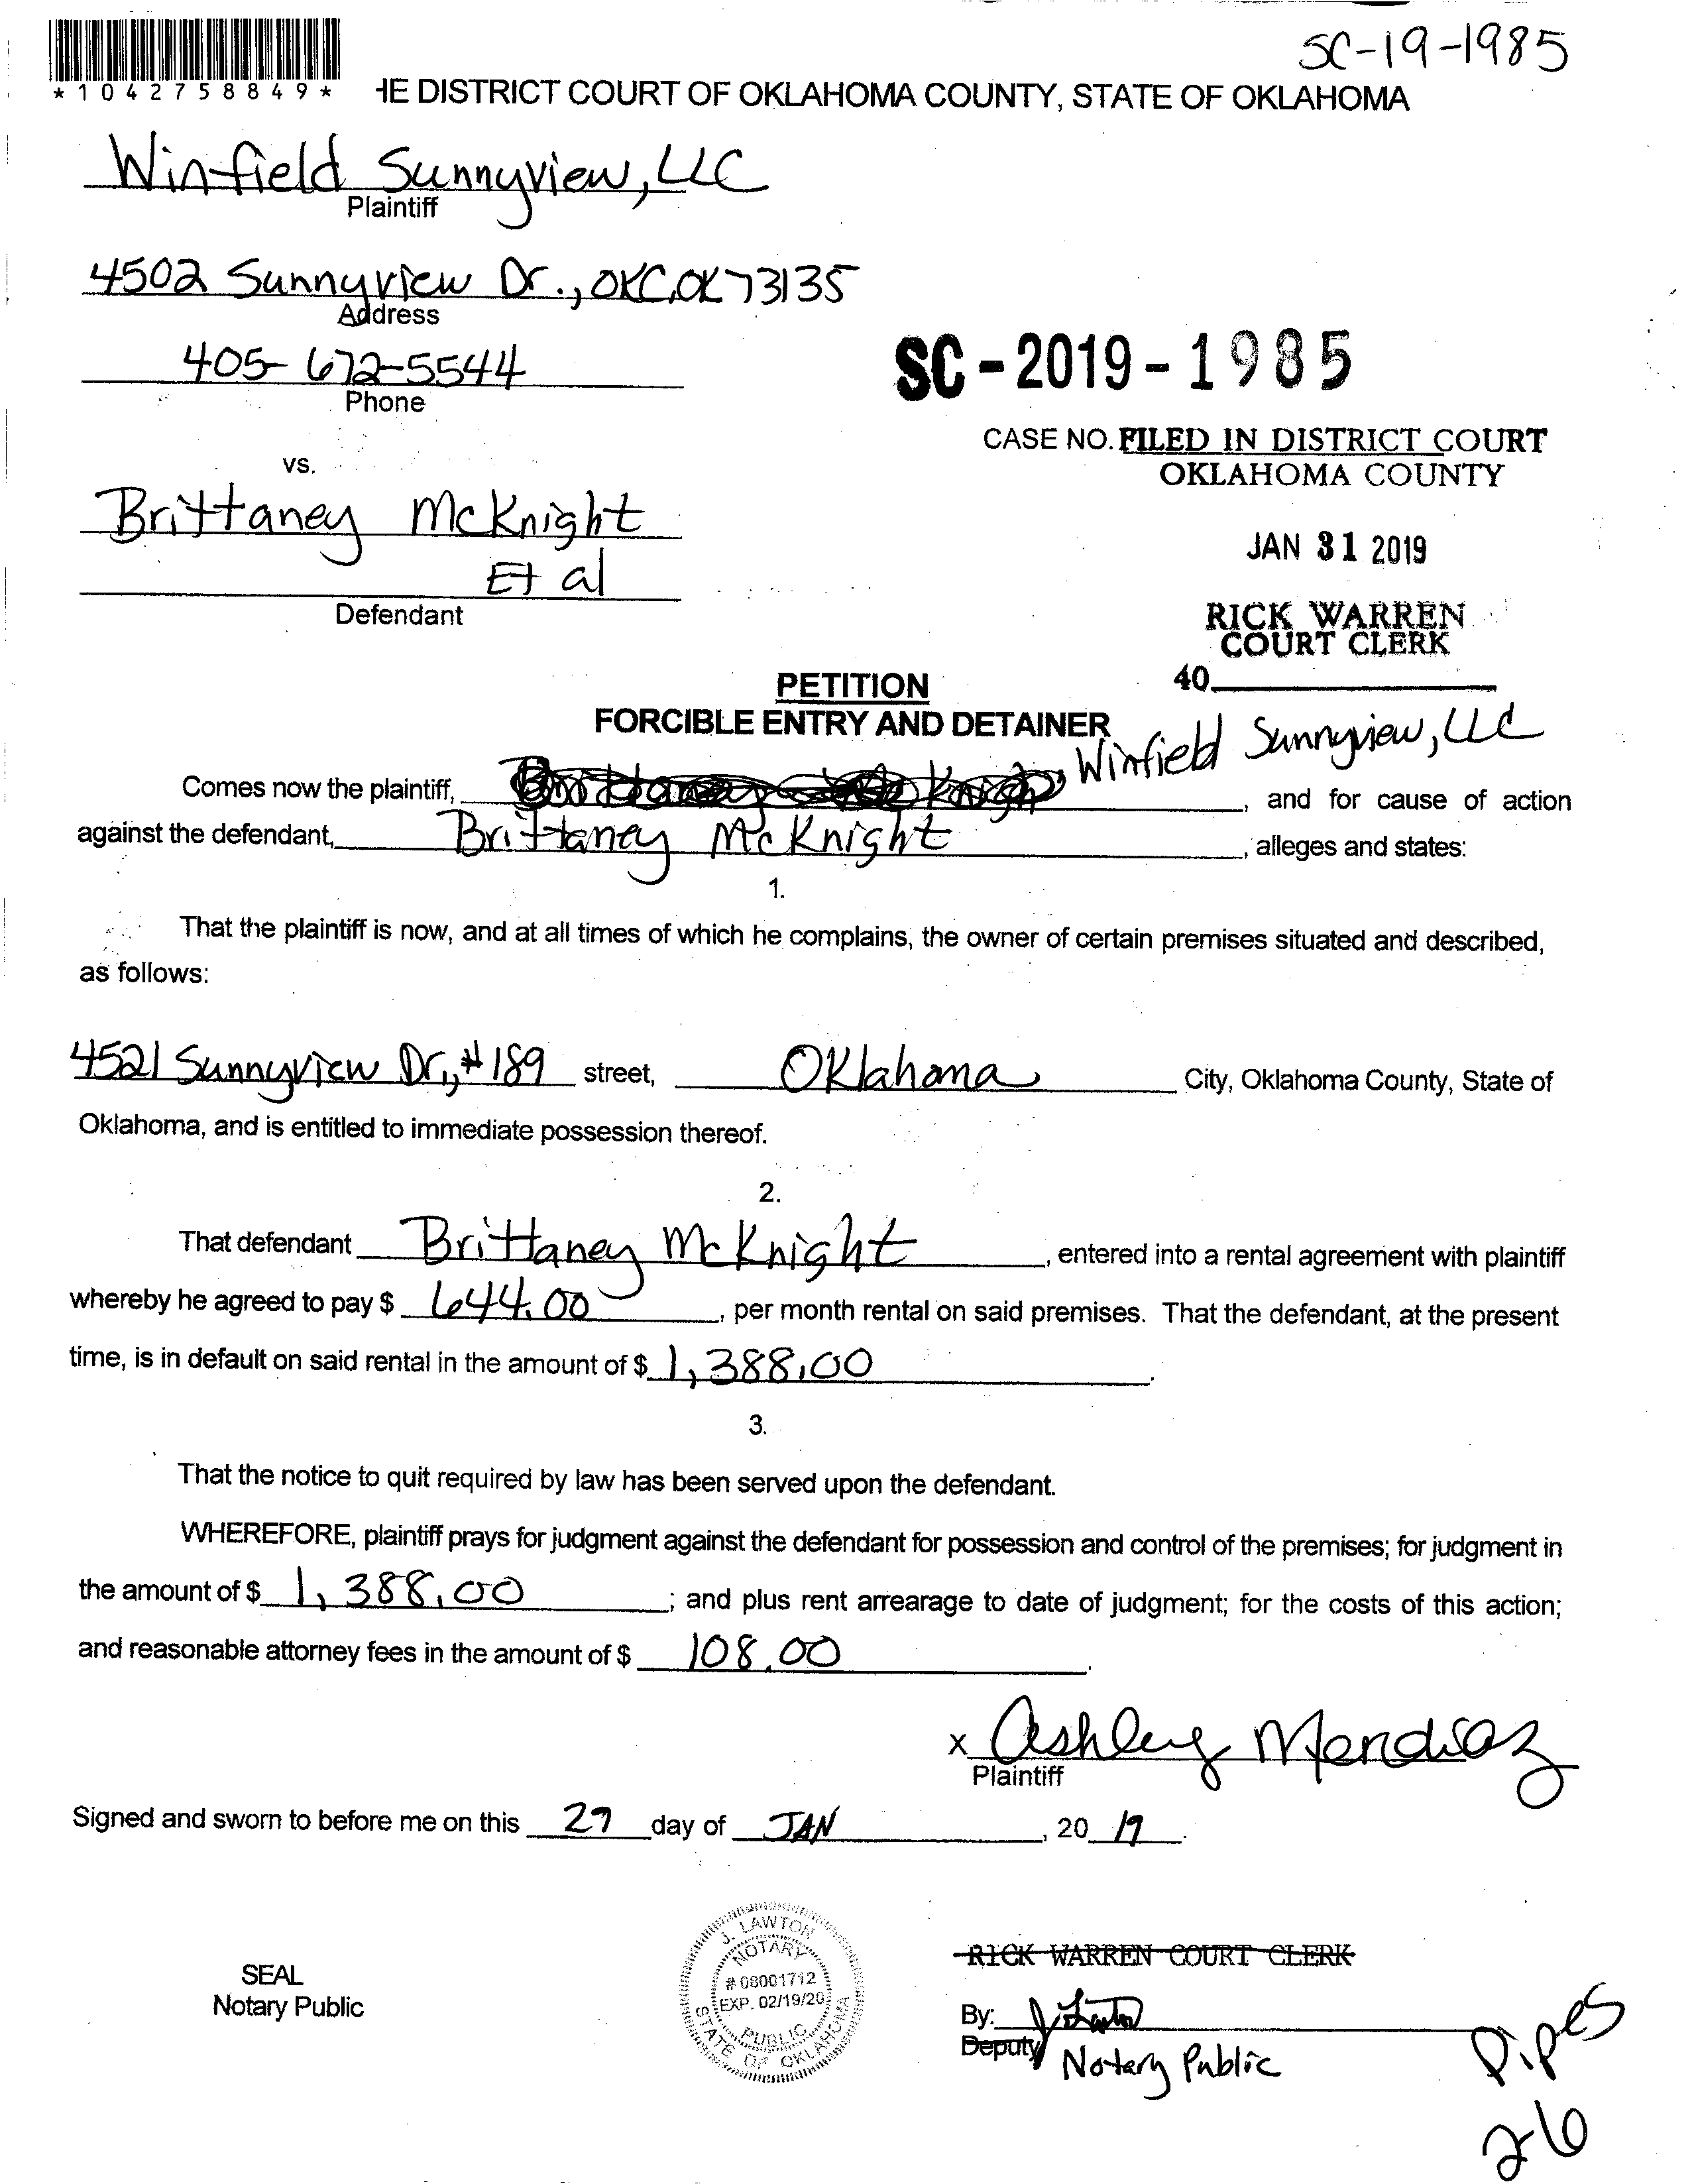 SC-19-1985
*1042758849*
HE DISTRICT COURT OF OKLAHOMA COUNTY, STATE OF OKLAHOMA
Winfield Sunnyview, LLC
Plaintiff
4502 Sunnyview Dr., OKC, OK 73135
Address
405-672-5544
Phone
SC-2019-1985
CASE NO. FILED IN DISTRICT COURT
OKLAHOMA COUNTY
vs.
Brittaney McKnight
Et al
Defendant
JAN 31 2019
RICK WARREN
COURT CLERK
40
PETITION
FORCIBLE ENTRY AND DETAINER
Comes now the plaintiff, Winfield Sunnyview, LLC, and for cause of action
against the defendant, Brittaney McKnight, alleges and states:
1.
That the plaintiff is now, and at all times of which he complains, the owner of certain premises situated and described,
as follows:
4521 Sunnyview Dr., #189 street, Oklahoma City, Oklahoma County, State of
Oklahoma, and is entitled to immediate possession thereof.
2.
That defendant Brittaney McKnight, entered into a rental agreement with plaintiff
whereby he agreed to pay $ 644.00, per month rental on said premises. That the defendant, at the present
time, is in default on said rental in the amount of $ 1,388.00.
3.
That the notice to quit required by law has been served upon the defendant.
WHEREFORE, plaintiff prays for judgment against the defendant for possession and control of the premises; for judgment in
the amount of $ 1,388.00; and plus rent arrearage to date of judgment; for the costs of this action;
and reasonable attorney fees in the amount of $ 108.00.
X Ashley Mendiaz
Plaintiff
Signed and sworn to before me on this 29 day of JAN, 20 19.
SEAL
Notary Public
J. LAWTON
NOTARY
# 08001712
EXP. 02/19/20
PUBLIC
STATE OF OKLAHOMA
RICK WARREN COURT CLERK
By: J. Lawton
Deputy Notary Public
Pipes
26